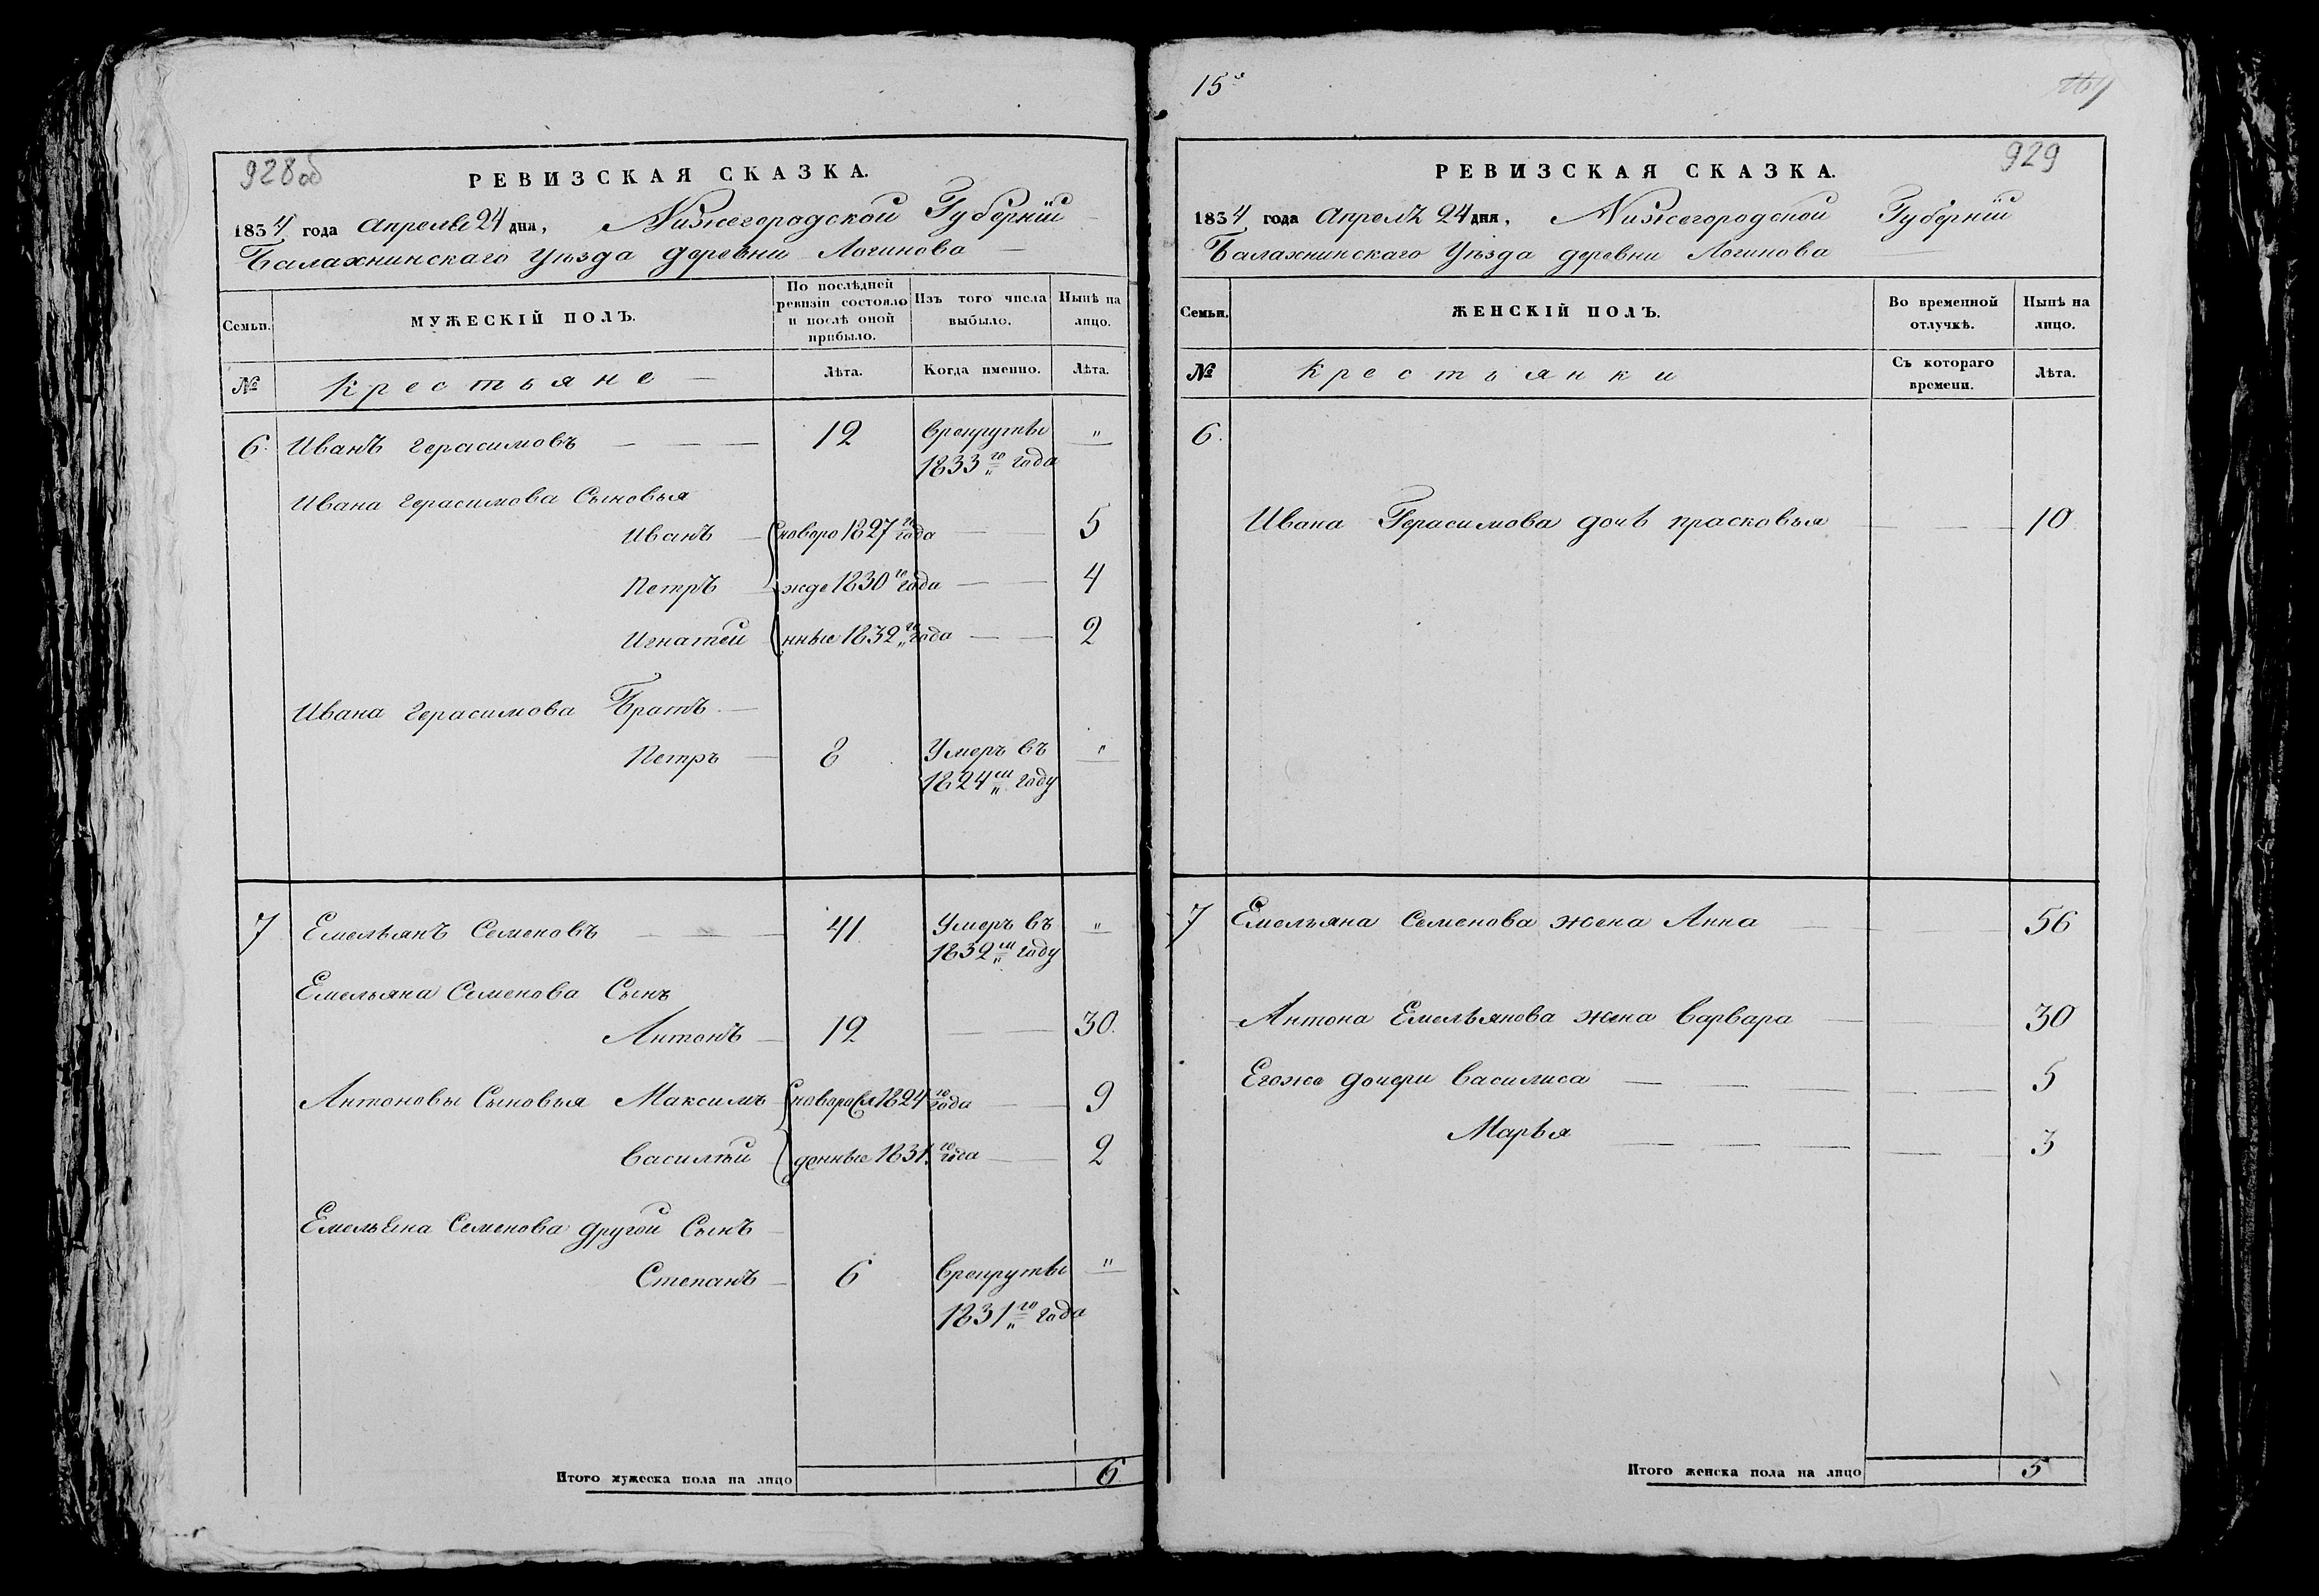 928об
РЕВИЗСКАЯ СКАЗКА.
1834 года Апреля 24 дня, Нижегородской Губернии
Балахнинскаго Уѣзда деревни Логинова
Семьи.
МУЖЕСКІЙ ПОЛЪ.
По послѣдней ревизіи состояло и послѣ оной прибыло.
Изъ того числа выбыло.
Нынѣ на лицо.
№
Крестьяне
Лѣта.
Когда именно.
Лѣта.
6. Иванъ Герасимовъ 12 врекруты "
1833го года
Ивана Герасимова Сыновья
Иванъ новоро 1827го года 5
Петръ жде 1830го года 4
Игнатей нные 1832го года 2
Ивана Герасимова Братъ
Петръ 8 Умеръ въ "
1824м году
7 Емельянъ Семеновъ 41 Умеръ въ "
1832м году
Емельяна Семенова Сынъ
Антонъ 12 30.
Антоновы Сыновья Максимъ новоро 1824го года 9
Василей денные 1831го года 2
Емельяна Семенова другой Сынъ
Степанъ 6 врекруты "
1831го года
Итого мужеска пола на лицо 6
15
929
РЕВИЗСКАЯ СКАЗКА.
1834 года Апреля 24 дня, Нижегородской Губернии
Балахнинскаго Уѣзда деревни Логинова
Семьи.
ЖЕНСКІЙ ПОЛЪ.
Во временной отлучкѣ.
Нынѣ на лицо.
№
Крестьянки
Съ котораго времени.
Лѣта.
6.
Ивана Герасимова дочь прасковья 10
7 Емельяна Семенова жена Анна 56
Антона Емельянова жена Варвара 30
Егоже дочери Василиса 5
Марья 3
Итого женска пола на лицо 5